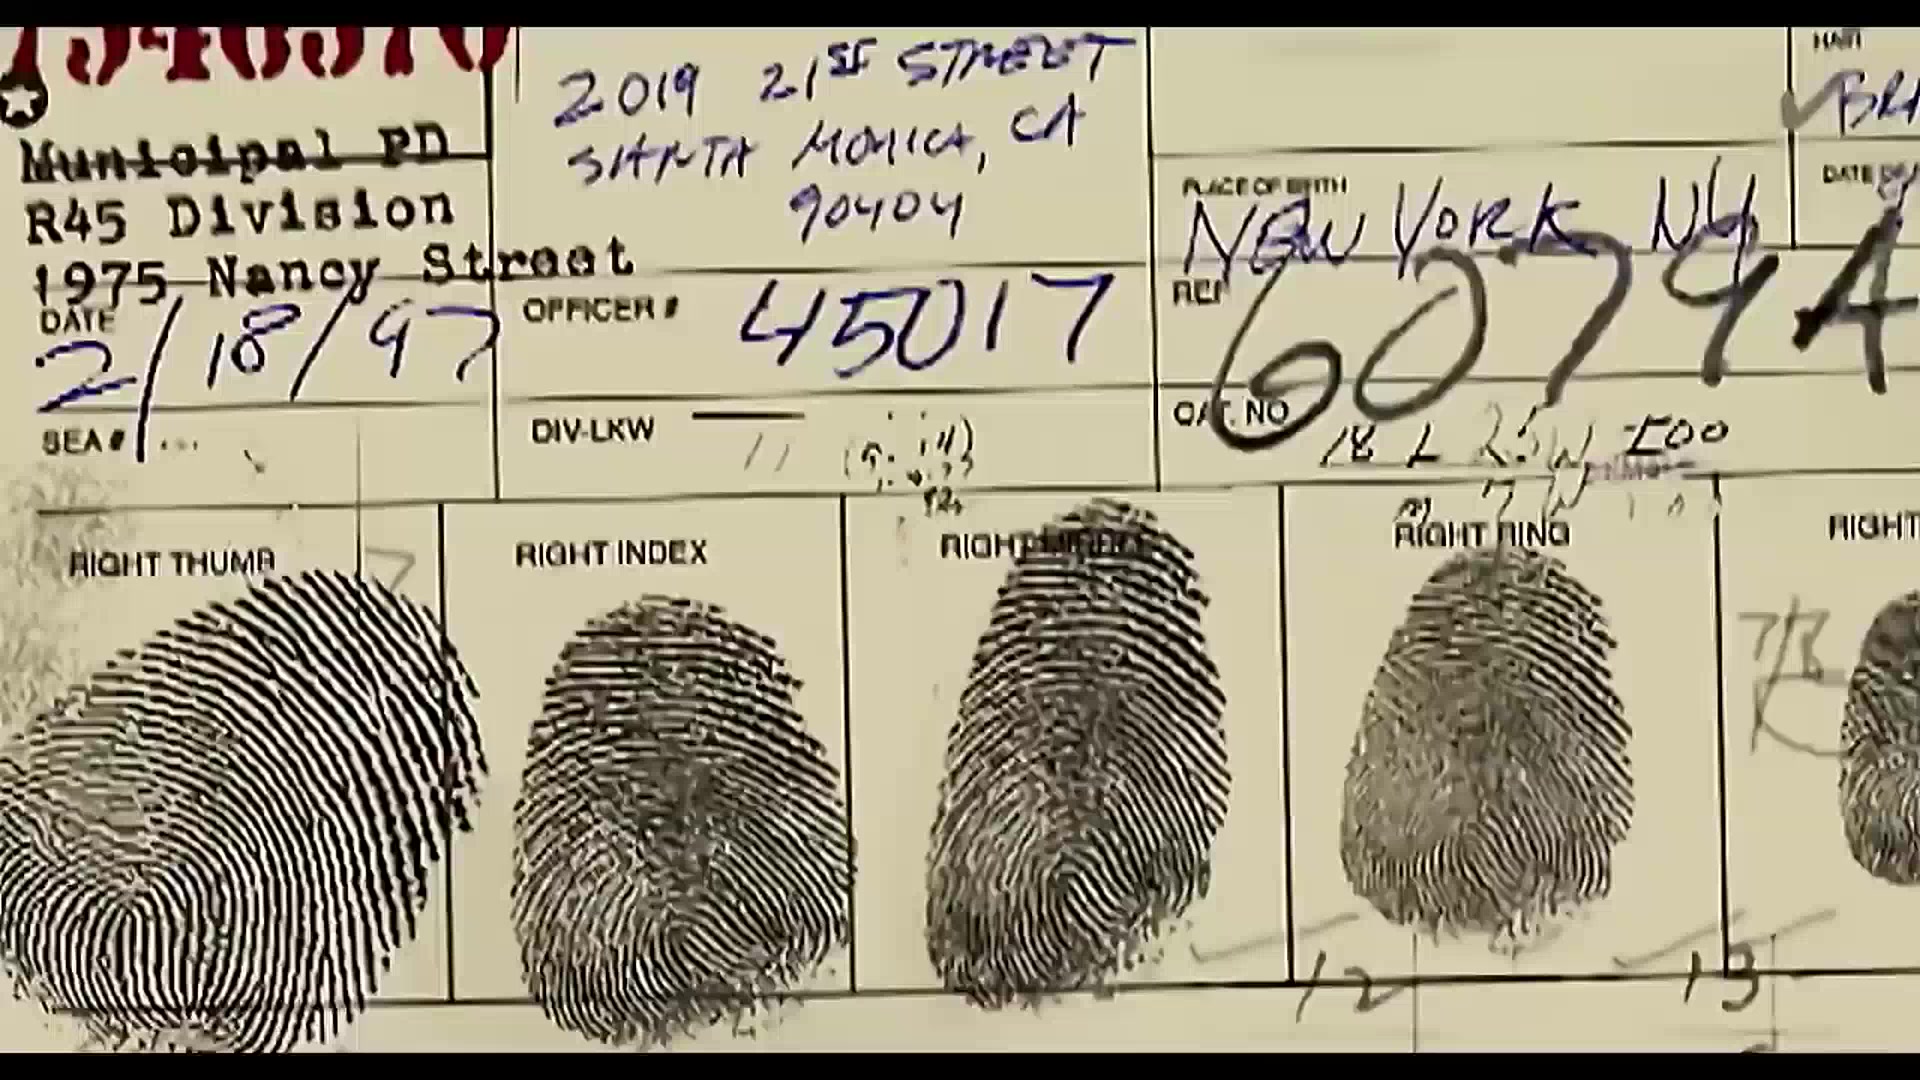 2019 21ST STREET
SANTA MONICA, CA
90404
Municipal PD
R45 Division
1975 Nancy Street
DATE
2/18/97
OFFICER #
45017
HAIR
PLACE OF BIRTH
NEW YORK NY
DATE OF
REF
6079A
SEA #
DIV-LKW
CAT. NO
18 L 25 W
RIGHT THUMB
RIGHT INDEX
RIGHT MIDDLE
RIGHT RING
RIGHT
12
13